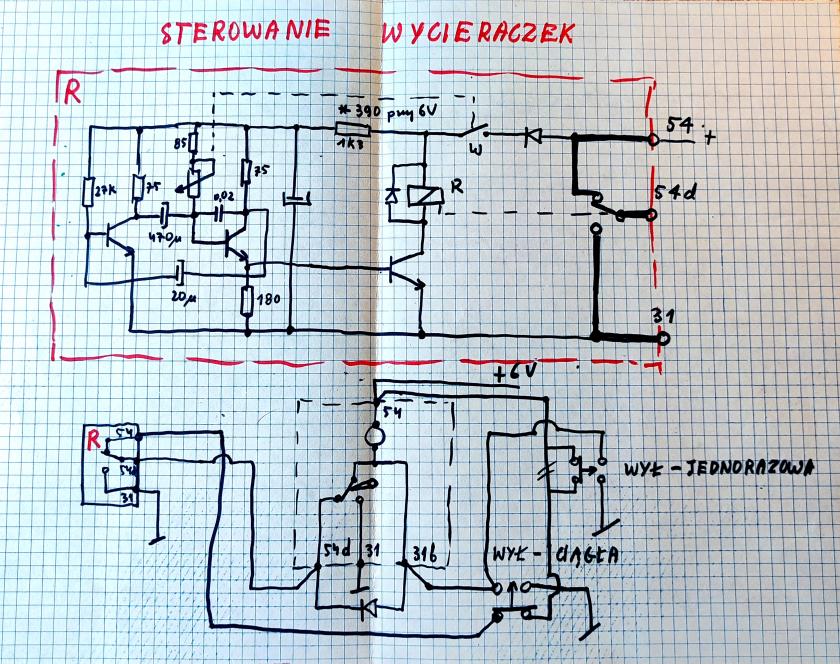 STEROWANIE WYCIERACZEK
R
* 390 przy 6V
1k3
W
54 +
85
27K
75
0,02
75
R
54d
470μ
20μ
180
31
+6V
54
R
54
54d
31
WYŁ - JEDNORAZOWA
54d
31
31b
WYŁ - CIĄGŁA